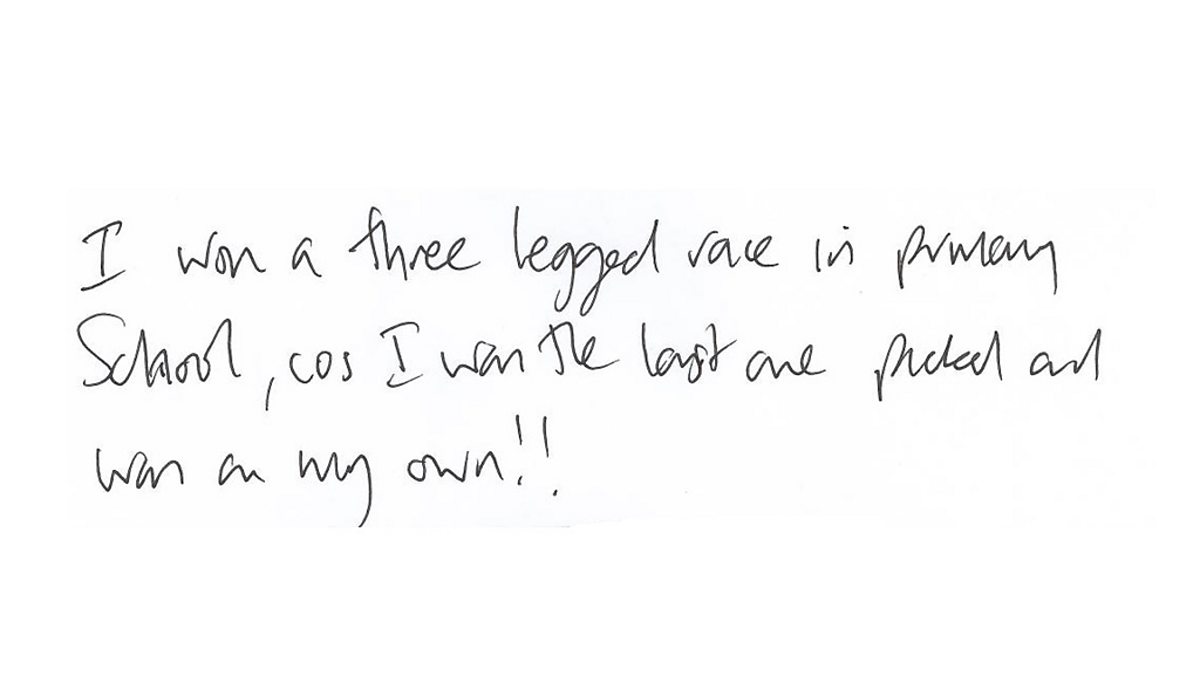 I won a three legged race in primary
School, cos I was the last one picked and
was on my own!!